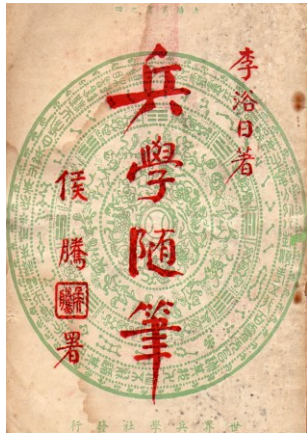 李浴日著
兵學隨筆
侯騰署
世界兵學社發行